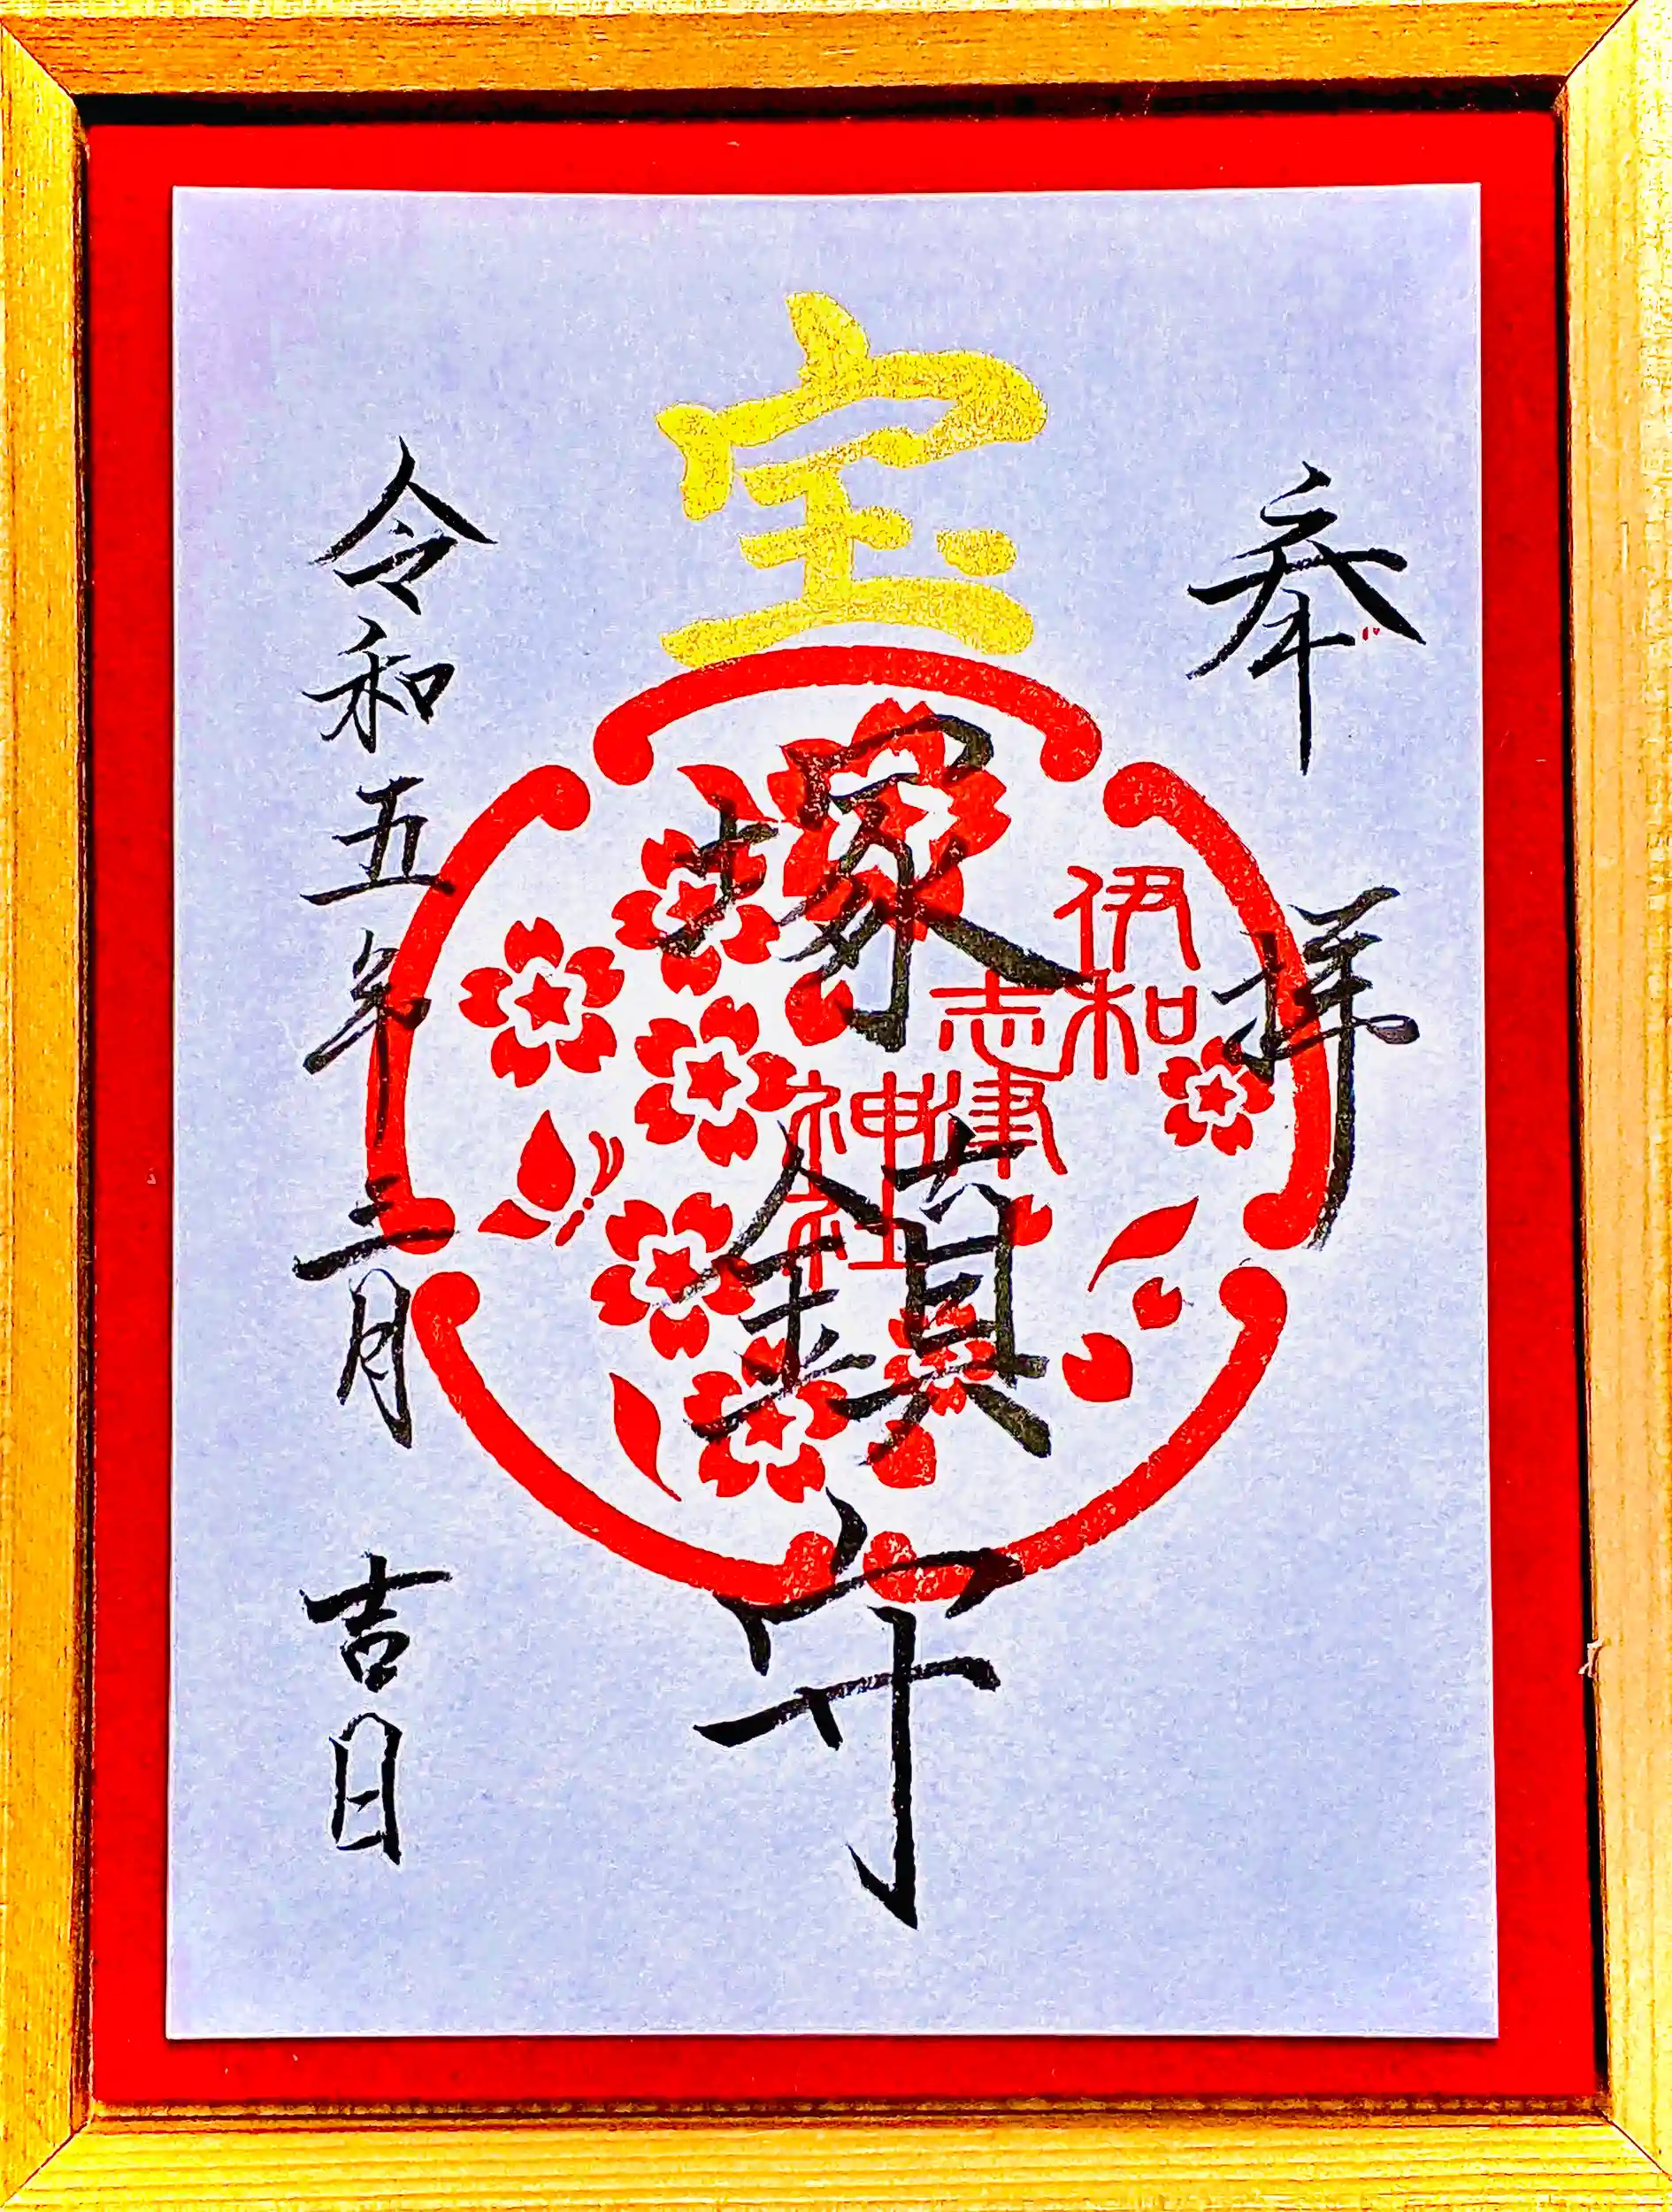 奉拝
宝
塚鎮守
伊和
志津
神社
令和五年三月吉日